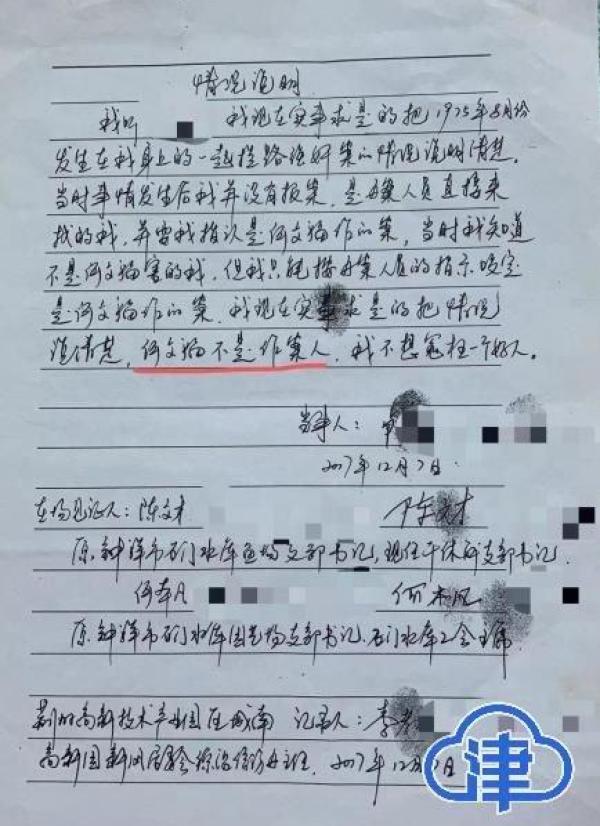 情况说明
我叫 我现在实事求是的把1975年8月份
发生在我身上的一起拦路强奸案的情况说明清楚。
当时事情发生后我并没有报案，是办案人员直接来
找的我，并要我指认是何文福作的案，当时我知道
不是何文福害的我，但我只能按办案人员的指示咬定
是何文福作的案。我现在实事求是的把情况
说清楚，何文福不是作案人，我不想冤枉一个好人。
当事人：
2007年12月7日
在场见证人：陈文才 陈文才
原钟祥市石门水库 场支部书记，现任干休所支部书记
何本
原钟祥市石门水库园艺场支部书记、石门水库工会主席
荆门高新技术产业园区城南 记录人：李
高新园新风 综治信访办主任 2007年12月7日
津